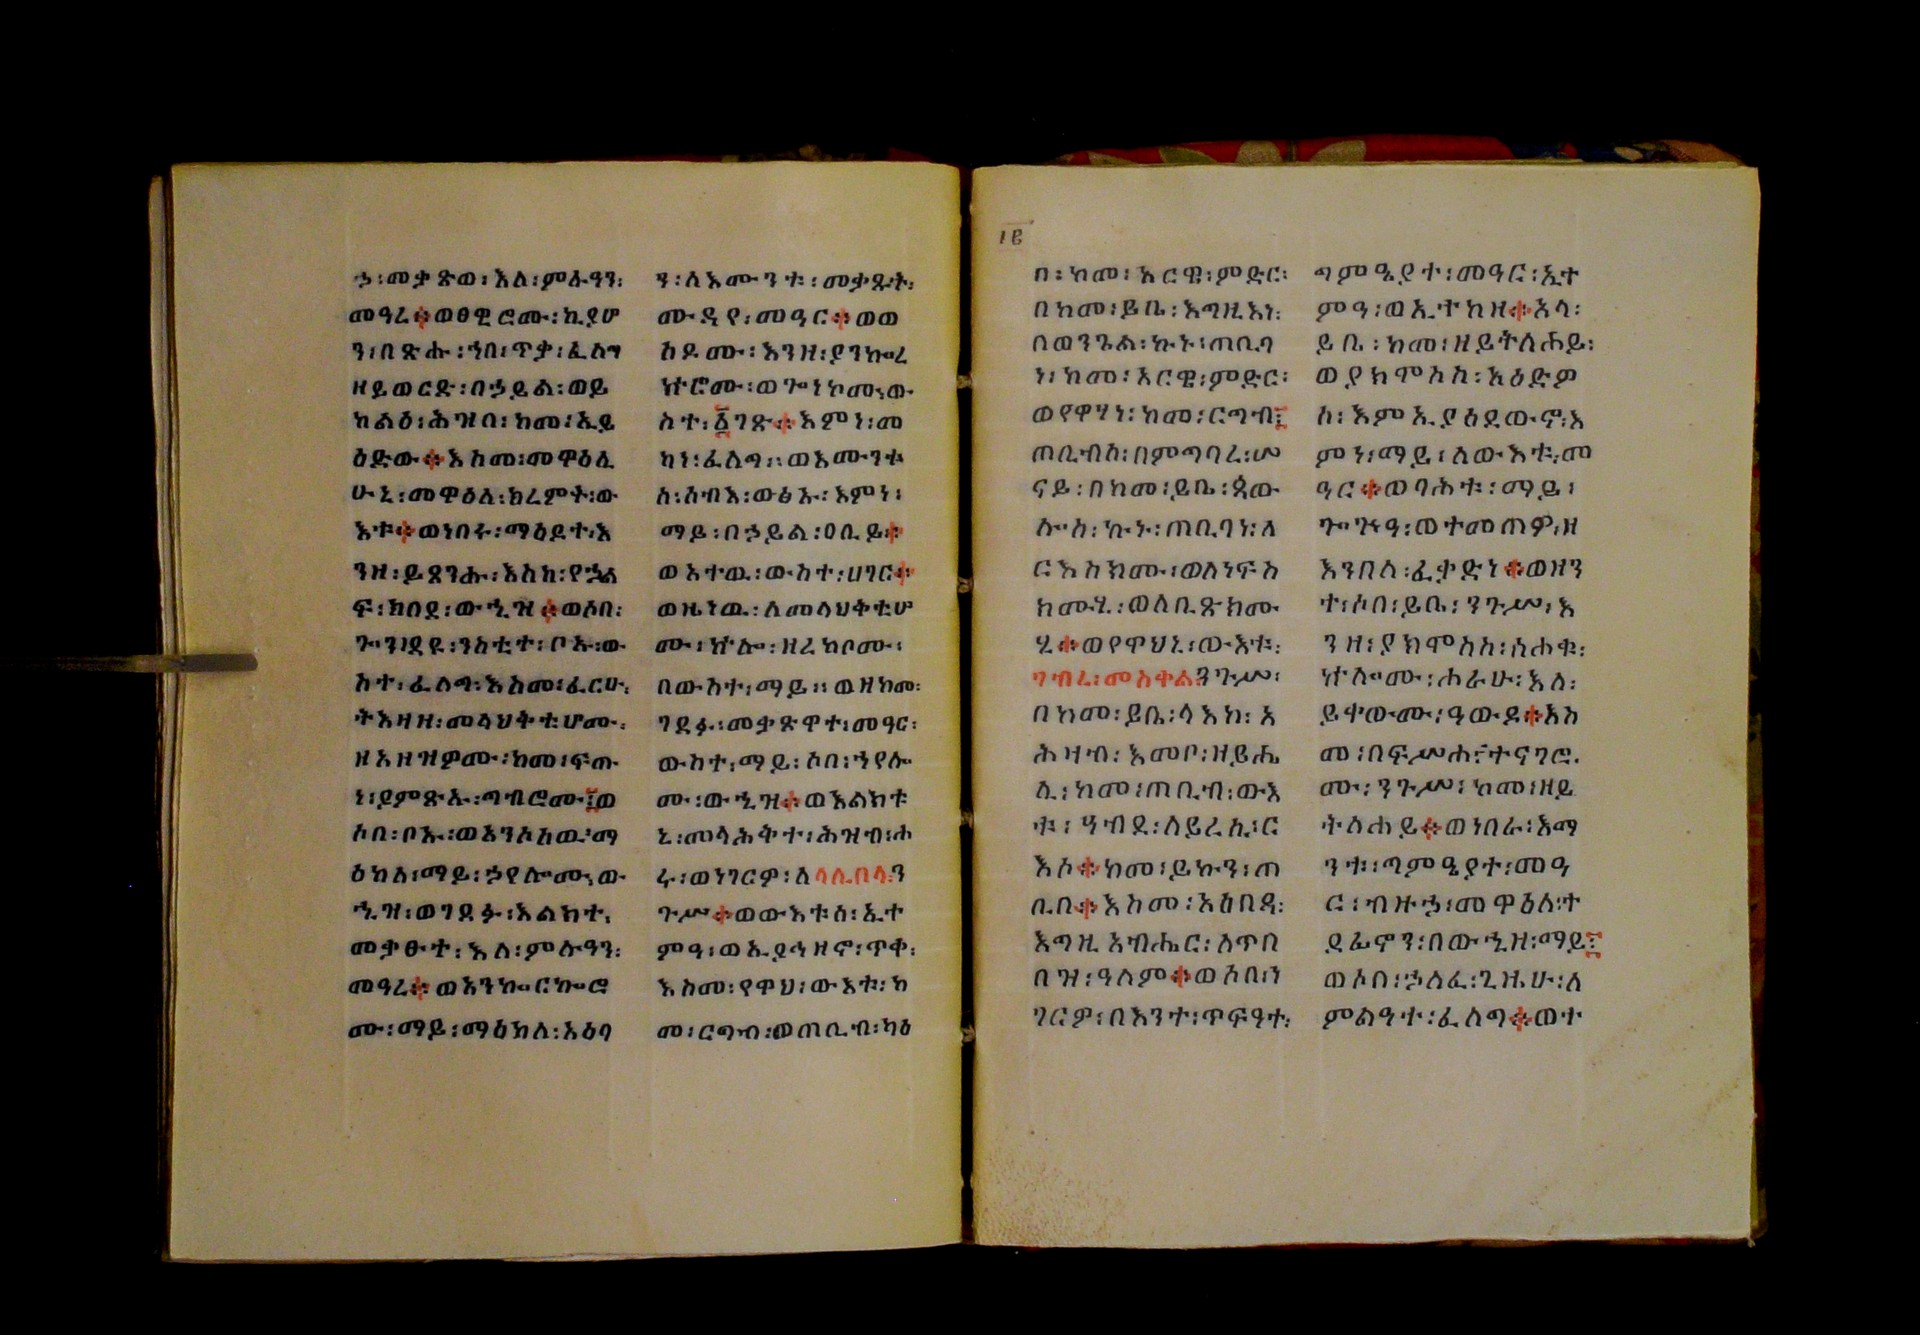 ኃ፡መቃጽወ፡እለ፡ምሉዓን፡
መዓረ።ወፀዊሮሙ፡ኪያሆ
ን፡በጽሑ፡ኀበ፡ጥቃ፡ፈለግ
ዘይወርድ፡በኃይል፡ወይ
ከልዕ፡ሕዝበ፡ከመ፡ኢይ
ዕድው።እስመ፡መዋዕሊ
ሁኒ፡መዋዕለ፡ክረምት፡ው
እቱ።ወነበሩ፡ማዕደተ፡እ
ንዘ፡ይጸንሑ፡እስከ፡የኃል
ፍ፡ክበደ፡ውኂዝ።ወሶበ፡
ጐንደዩ፡ንስቲተ፡ቦኡ፡ው
ስተ፡ፈለግ፡እስመ፡ፈርሁ፡
ትእዛዘ፡መላህቅቲሆሙ፡
ዘአዘዝዎሙ፡ከመ፡ፍጡ
ነ፡ያምጽኡ፡ጣብሮሙ፤ወ
ሶበ፡ቦኡ፡ወእንሶሰዉ፡ማ
ዕከለ፡ማይ፡ኃየሎሙ፡ው
ኂዝ፡ወገደፉ፡እልክተ፡
መቃፁተ፡እለ፡ምሉዓን፡
መዓረ።ወአንኰርኰሮ
ሙ፡ማይ፡ማዕከለ፡አዕባ
ን፡ለእሙንቱ፡መቃጹት፡
ሙዳየ፡መዓር።ወወ
ሰዶሙ፡እንዘ፡ያንኰረ
ኵሮሙ፡ወጐነኮሙ፡ው
ስተ፡፩ገጽ።እምነ፡መ
ካነ፡ፈለግ፡፡ወእሙንቱ
ሰ፡ሰብእ፡ወፅኡ፡እምነ፡
ማይ፡በኃይል፡ዐቢይ።
ወአተዉ፡ውስተ፡ሀገር።
ወዜነዉ፡ለመላህቅቲሆ
ሙ፡ኵሎ፡ዘረከቦሙ፡
በውስተ፡ማይ፡፡ወዘከመ፡
ገደፉ፡መቃጽዋተ፡መዓር፡
ውስተ፡ማይ፡ሶበ፡ኀየሎ
ሙ፡ውኂዝ።ወእልክቱ
ኒ፡መላሕቅተ፡ሕዝብ፡ሐ
ሩ፡ወነገርዎ፡ለላሊበላ፡ን
ጉሥ።ወውእቱሰ፡ኢተ
ምዓ፡ወኢያኅዘኖ፡ጥቀ፡
እስመ፡የዋህ፡ውእቱ፡ከ
መ፡ርግብ፡ወጠቢብ፡ካዕ
፲፪
በ፡ከመ፡አርዌ፡ምድር፡
በከመ፡ይቤ፡እግዚእነ፡
በወንጌል፡ኩኑ፡ጠቢባ
ነ፡ከመ፡አርዌ፡ምድር፡
ወየዋሃነ፡ከመ፡ርግብ፤
ጠቢብሰ፡በምግባረ፡ሠ
ናይ፡በከመ፡ይቤ፡ጳው
ሎስ፡ኩኑ፡ጠቢባነ፡ለ
ርእስክሙ፡ወለነፍስ
ክሙሂ፡ወለቢጽክሙ
ሂ።ወየዋህኒ፡ውእቱ፡
ገብረ፡መስቀል፡ንጉሥ፡
በከመ፡ይቤ፡ላእክ፡አ
ሕዛብ፡እመቦ፡ዘይሔ
ሊ፡ከመ፡ጠቢብ፡ውእ
ቱ፡ዓብደ፡ለይረሲ፡ር
እሶ።ከመ፡ይኩን፡ጠ
ቢበ።እስመ፡አዕበዳ፡
እግዚአብሔር፡ለጥበ
በዝ፡ዓለም።ወሶበ፡ን
ገርዎ፡በእንተ፡ጥፍዓተ፡
ጣምዔያተ፡መዓር፡ኢተ
ምዓ፡ወኢተከዘ።አላ፡
ይቤ፡ከመ፡ዘይትለሐይ፡
ወያክሞስስ፡አዕድዎ
ሰ፡እምኢያዕደውኖ፡እ
ምነ፡ማይ፡ለውእቱ፡መ
ዓር።ወባሕቱ፡ማይ፡
ጐጕዓ፡ወተመጠዎ፡ዘ
እንበለ፡ፈቃድነ።ወዘን
ተ፡ሶበ፡ይቤ፡ንጉሥ፡እ
ንዘ፡ያክሞስስ፡ሰሐቁ፡
ኵሎሙ፡ሐራሁ፡እለ፡
ይቀውሙ፡ዓውዶ።እስ
መ፡በፍሥሐ፡ተናገሮ
ሙ፡ንጉሥ፡ከመ፡ዘይ
ትለሐይ።ወነበራ፡እማ
ንቱ፡ጣምዔያተ፡መዓ
ር፡ብዙኃ፡መዋዕለ፡ተ
ደፊኖን፡በውኂዘ፡ማይ፤
ወሶበ፡ኃለፈ፡ጊዜሁ፡ለ
ምልዓተ፡ፈለግ።ወተ